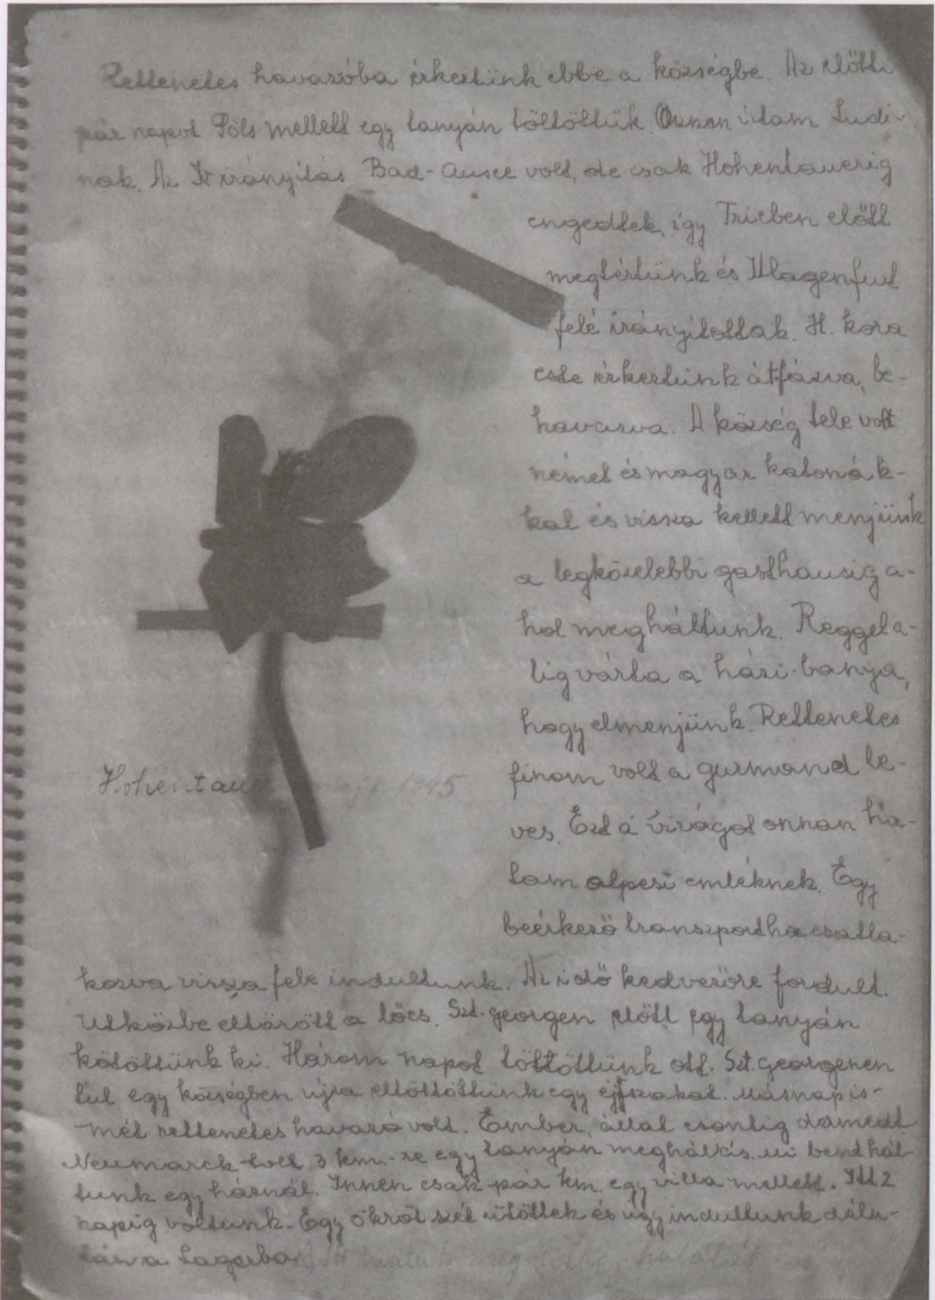 Rettenetes havazóba érkeztünk ebbe a községbe. Az előtti
pár napot Pöls mellett egy tanyán töltöttük. Onnan írtam Ludi-
nak. Az irányítás Bad-Ausee volt, de csak Hohentauerig
engedtek, így Trieben előtt
megtértünk és Klagenfurt
felé irányítottak. H. kora
este érkeztünk átfázva, be-
havazva. A község tele volt
német és magyar katonák-
kal és vissza kellett menjünk
a legközelebbi gasthausig a-
hol megháltunk. Reggel a-
lig várta a házi-banya,
hogy elmenjünk. Rettenetes
finom volt a gurmand le-
ves. Ezt a virágot onnan hoz-
tam alpesi emléknek. Egy
beérkező transzporthoz csatla-
kozva vissza fele indultunk. Az idő kedvezőre fordult.
Útközbe eltörött a lőcs. Szt. georgen előtt egy tanyán
kötöttünk ki. Három napot töltöttünk ott. Szt. Georgenen
tul egy községben újra eltöltöttünk egy éjszakát. Másnap is-
mét rettenetes havazó volt. Ember, állat csontig
Neumarck 3 km.-re egy tanyán meghálás. mi bent hál-
tunk egy háznál. Innen csak pár km. egy villa mellett. Itt 2
napig voltunk. Egy ökröt szét ütöttek és úgy indultunk délu-
tán a Lagerba
Hohentauer 1945